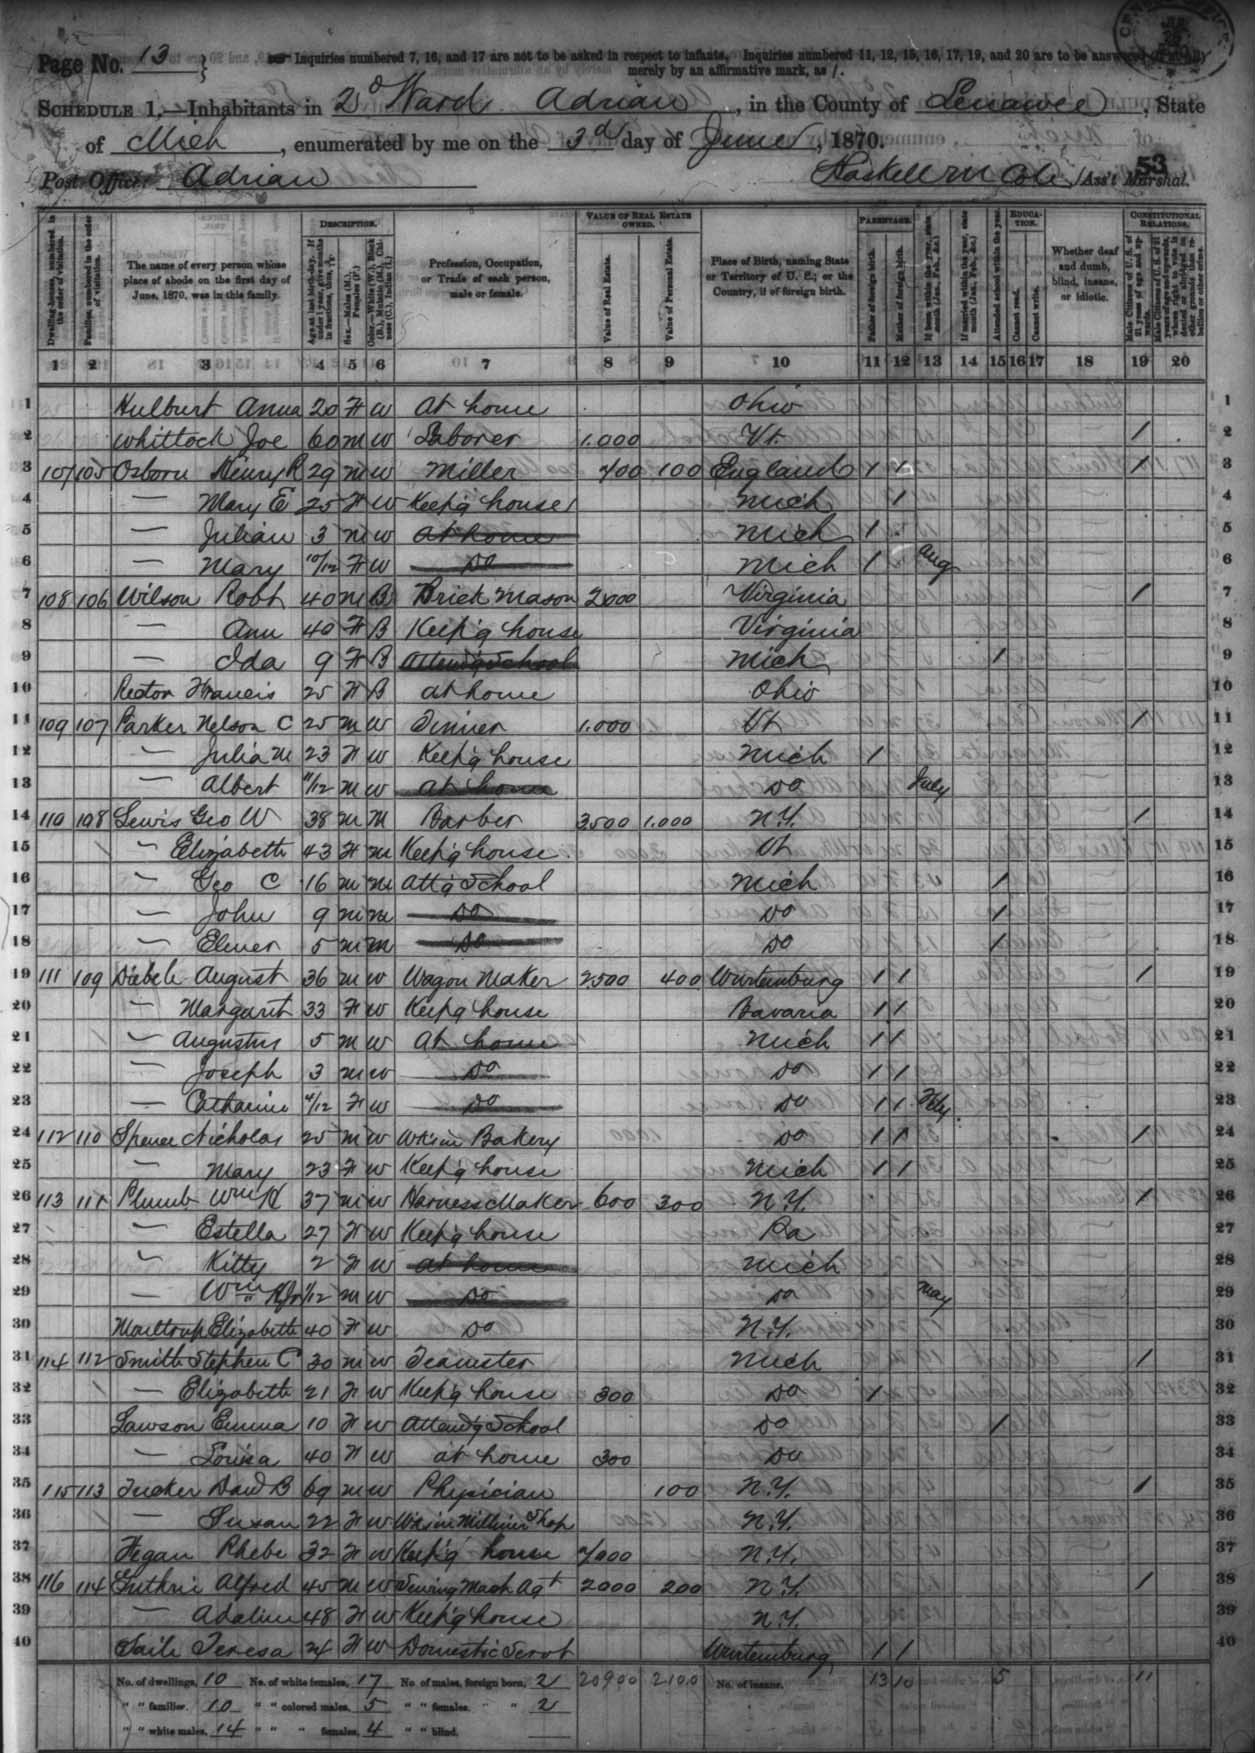 Page No. 13 } Inquiries numbered 7, 16, and 17 are not to be asked in respect to infants. Inquiries numbered 11, 12, 15, 16, 17, 19, and 20 are to be answered
merely by an affirmative mark, as /.
SCHEDULE 1.—Inhabitants in 2d Ward Adrian, in the County of Lenawee, State
of Mich, enumerated by me on the 3d day of June, 1870.
53
Post Office: Adrian Haskell M Cole, Ass't Marshal.
DESCRIPTION. VALUE OF REAL ESTATE OWNED. PARENTAGE. EDUCATION. CONSTITUTIONAL RELATIONS.
Dwelling-houses, numbered in the order of visitation. Families, numbered in the order of visitation. The name of every person whose place of abode on the first day of June, 1870, was in this family. Profession, Occupation, or Trade of each person, male or female. Value of Real Estate. Value of Personal Estate. Place of Birth, naming State or Territory of U. S.; or the Country, if of foreign birth. Father of foreign birth. Mother of foreign birth. Attended school within the year. Cannot read. Cannot write. Whether deaf and dumb, blind, insane, or idiotic.
1 2 3 4 5 6 7 8 9 10 11 12 13 14 15 16 17 18 19 20
1 Hulburt Anna 20 F W At home Ohio 1
2 Whittock Joe 60 M W Laborer 1.000 Vt. / 2
3 107 105 Osborn Henry R 29 M W Miller 700 100 England / / / 3
4 — Mary E 25 F W Keep'g house Mich / 4
5 — Julian 3 M W At home Mich / 5
6 — Mary 10/12 F W Do Mich / Aug 6
7 108 106 Wilson Robt 40 M B Brick Mason 2000 Virginia / 7
8 — Ann 40 F B Keep'g house Virginia 8
9 — Ida 9 F B Attend'g School Mich / 9
10 Rector Francis 25 F B at home Ohio 10
11 109 107 Parker Nelson C 25 M W Tinner 1.000 Vt / 11
12 — Julia M 23 F W Keep'g house Mich / 12
13 — Albert 11/12 M W at home Do July 13
14 110 108 Lewis Geo W 38 M M Barber 3500 1.000 N.Y. / 14
15 — Elizabeth 43 F M Keep'g house Vt 15
16 — Geo C 16 M M Att'g School Mich / 16
17 — John 9 M M Do Do / 17
18 — Elmer 5 M M Do Do / 18
19 111 109 Diebele August 36 M W Wagon Maker 2500 400 Wurtemburg / / / 19
20 — Margarit 33 F W Keep'g house Bavaria / / 20
21 — Augustus 5 M W At home Mich / / 21
22 — Joseph 3 M W Do Do / / 22
23 — Catharine 4/12 F W Do Do / / Feby. 23
24 112 110 Spener Nicholas 25 M W Wks in Bakery Do / / / 24
25 — Mary 23 F W Keep'g house Mich / / 25
26 113 111 Plumb Wm H 37 M W Harness Maker 600 300 N.Y. / 26
27 — Estella 27 F W Keep'g house Pa 27
28 — Kitty 2 F W at home Mich 28
29 — Wm H Jr 1/12 M W Do Do May 29
30 Moultrup Elizabeth 40 F W Do N.Y. 30
31 114 112 Smith Stephen C 30 M W Teamster Mich / 31
32 — Elizabeth 21 F W Keep'g house 300 Do / 32
33 Lawson Emma 10 F W Attend'g School Do / 33
34 — Louisa 40 F W at home 300 Do 34
35 115 113 Tucker David B 69 M W Physician 100 N.Y. / 35
36 — Susan 22 F W Wks in Milliner Shop N.Y. 36
37 Fegan Phebe 32 F W Keep'g house 7000 N.Y. 37
38 116 114 Guthrie Alfred 45 M W Sewing Mach Agt 2000 200 N.Y. / 38
39 — Adaline 48 F W Keep'g house N.Y. 39
40 Saile Teresa 24 F W Domestic Servt Wurtemburg / / 40
No. of dwellings, 10 No. of white females, 17 No. of males, foreign born, 2 20900 2100 No. of insane, 13 10 5 11
" " families, 10 " " colored males, 5 " " females, " " 2
" " white males, 14 " " " females, 4 " " blind,